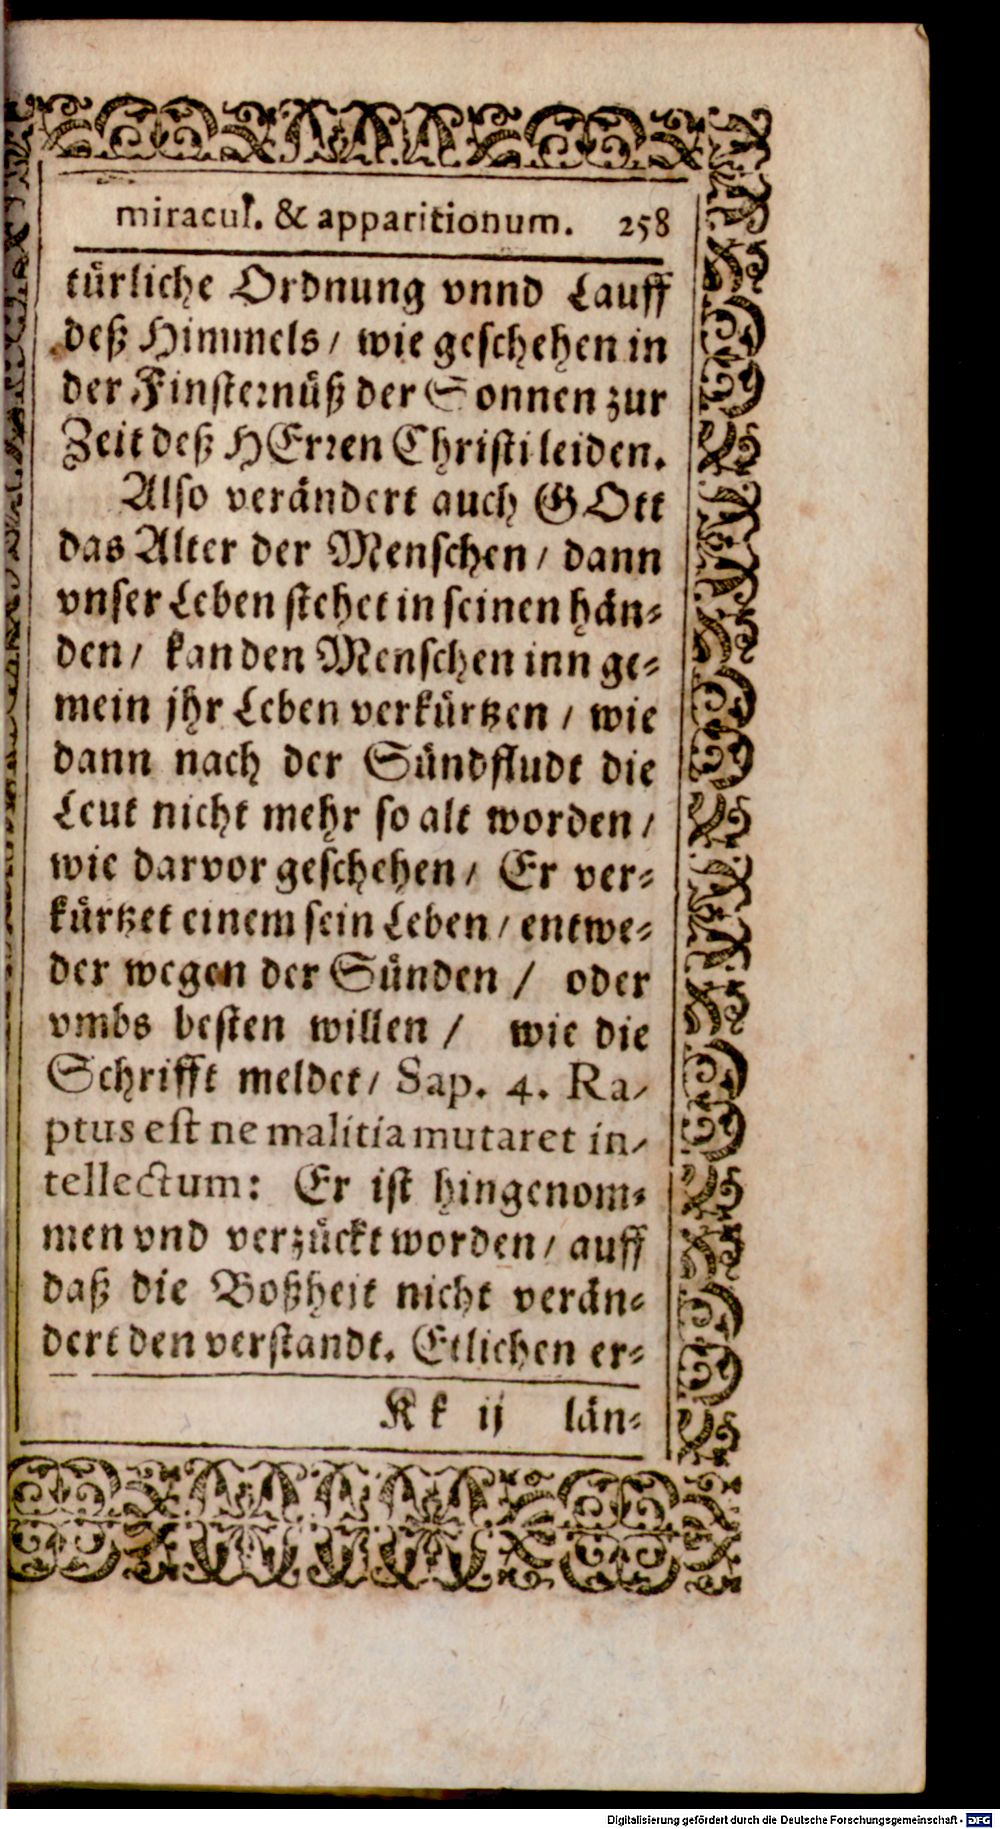 miracul. & apparitionum. 258
türliche Ordnung vnnd Lauff
deß Himmels / wie geschehen in
der Finsternüß der Sonnen zur
Zeit deß HErren Christi leiden.
Also verändert auch GOtt
das Alter der Menschen / dann
vnser Leben stehet in seinen hän-
den / kan den Menschen inn ge-
mein jhr Leben verkürtzen / wie
dann nach der Sündfludt die
Leut nicht mehr so alt worden /
wie darvor geschehen / Er ver-
kürtzet einem sein Leben / entwe-
der wegen der Sünden / oder
vmbs besten willen / wie die
Schrifft meldet / Sap. 4. Ra-
ptus est ne malitia mutaret in-
tellectum: Er ist hingenom-
men vnd verzückt worden / auff
daß die Boßheit nicht verän-
dert den verstandt. Etlichen er-
Kk ij län-
Digitalisierung gefördert durch die Deutsche Forschungsgemeinschaft - DFG